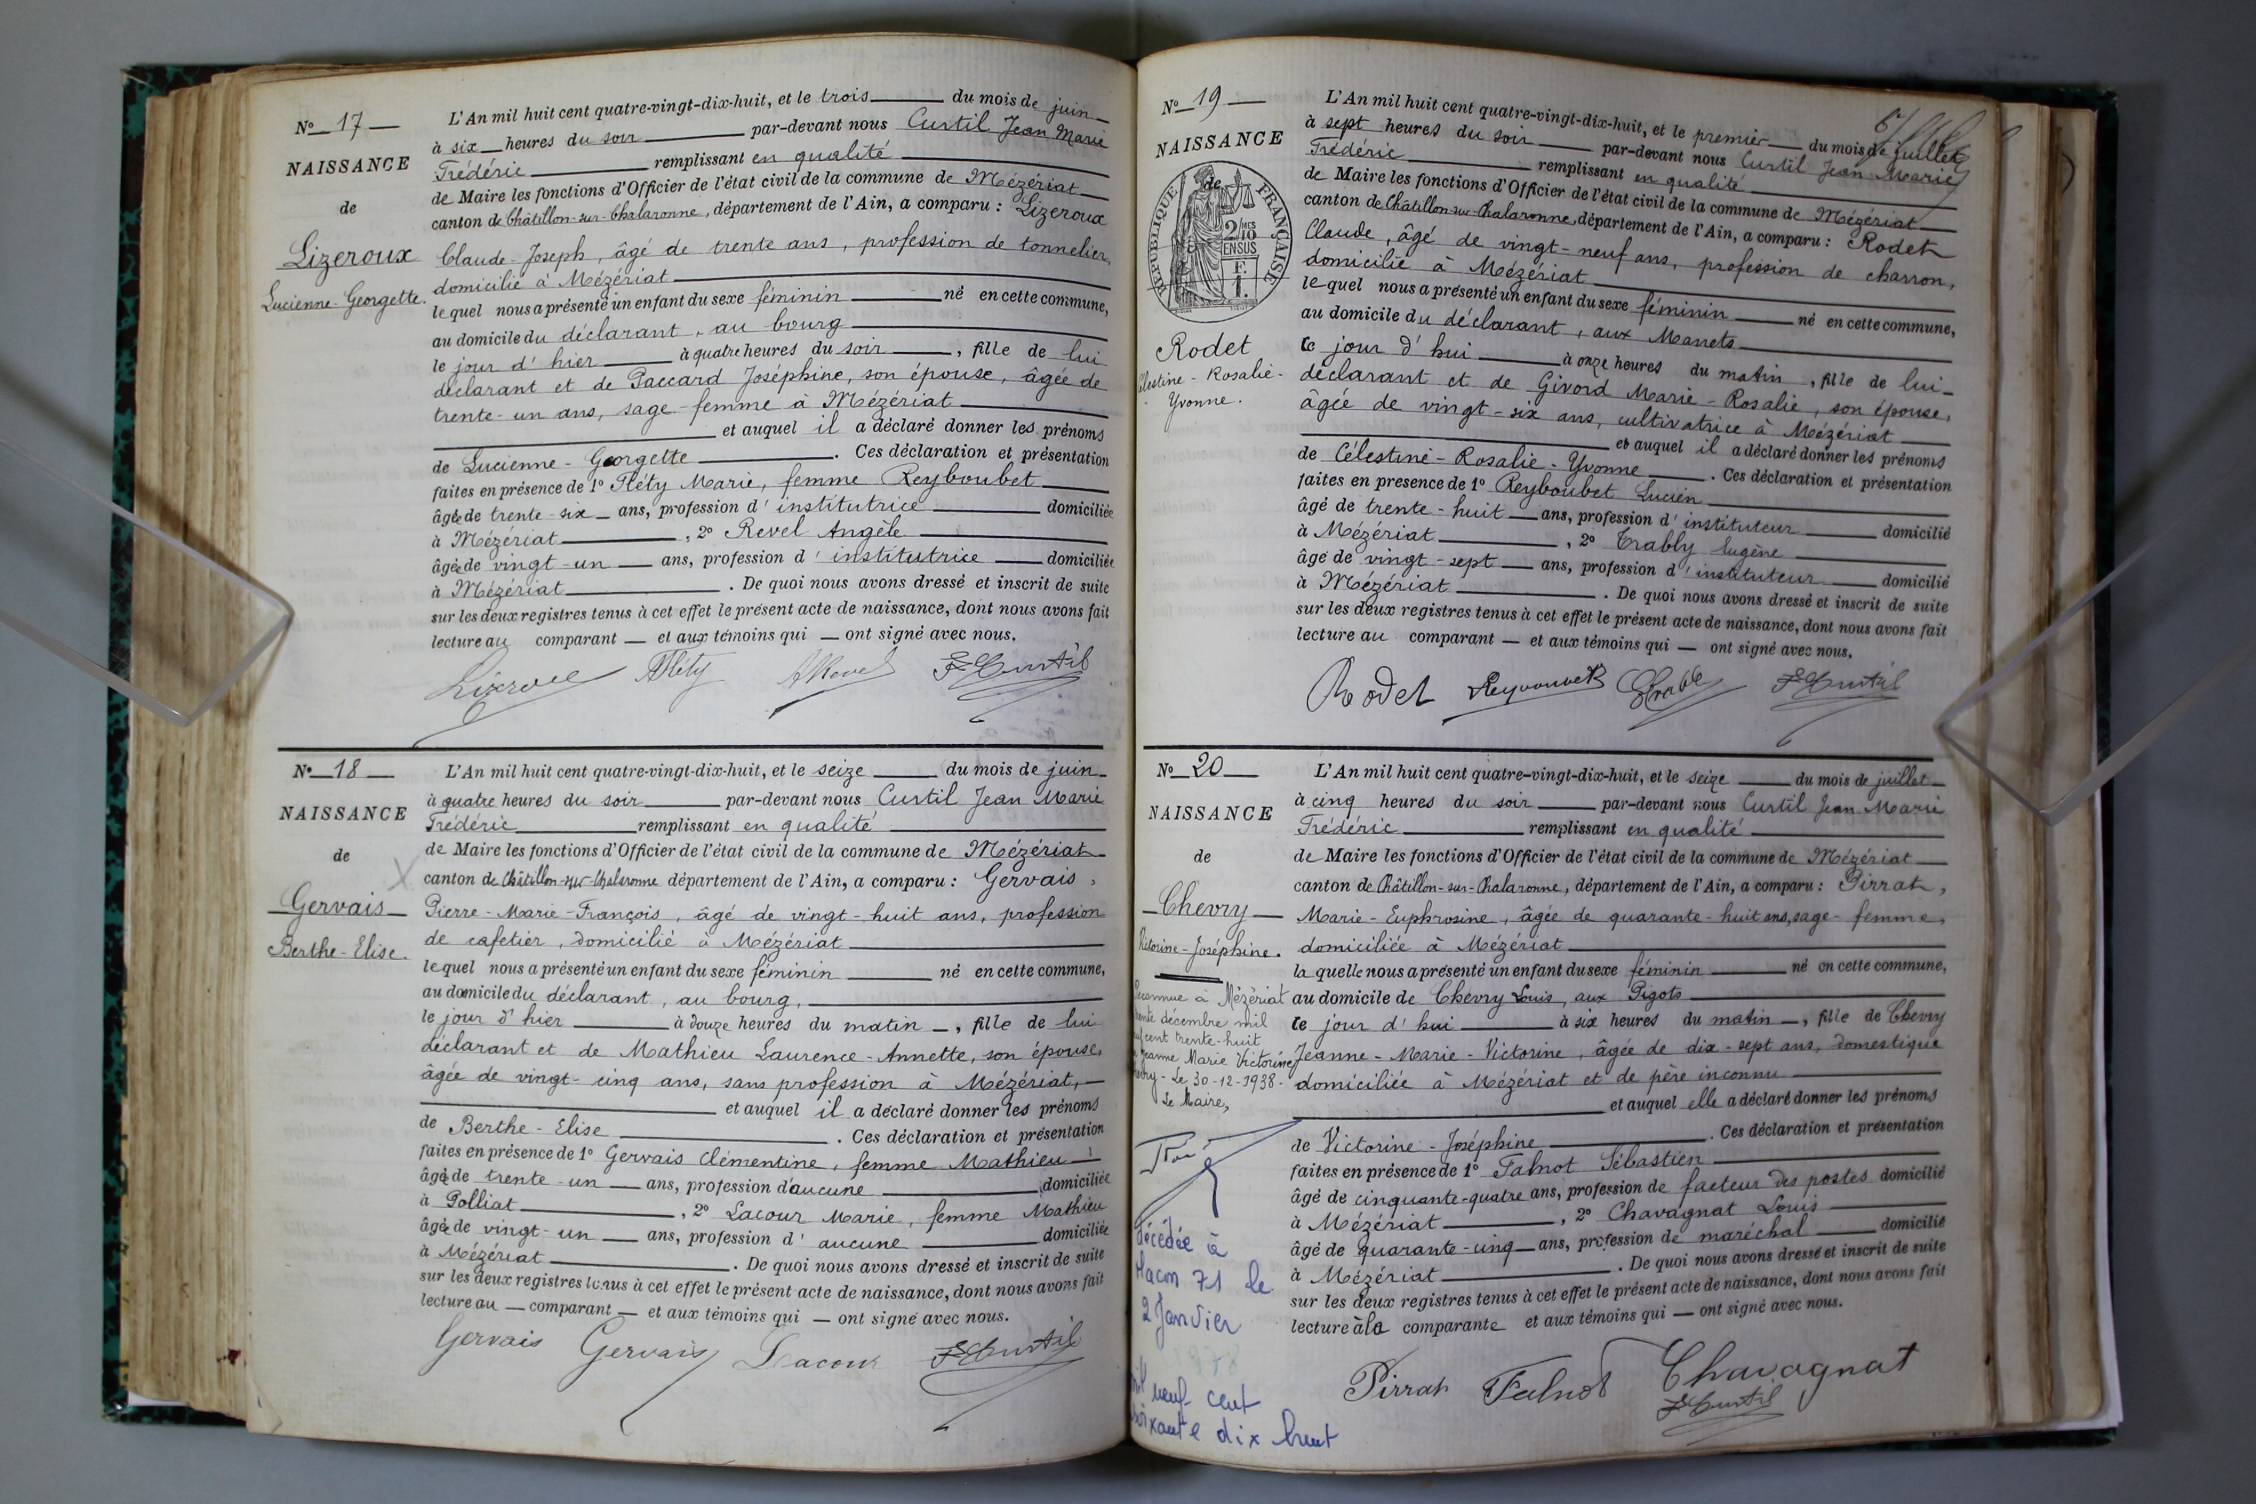 N° 17
NAISSANCE
de
Lizeroux
Lucienne-Georgette.
L'An mil huit cent quatre-vingt-dix-huit, et le trois du mois de juin
à six heures du soir par-devant nous Curtil Jean Marie
Frédéric remplissant en qualité
de Maire les fonctions d'Officier de l'état civil de la commune de Mézériat
canton de Châtillon-sur-Chalaronne, département de l'Ain, a comparu : Lizeroux
Claude-Joseph, âgé de trente ans, profession de tonnelier,
domicilié à Mézériat
lequel nous a présenté un enfant du sexe féminin né en cette commune,
au domicile du déclarant, au bourg
le jour d'hier à quatre heures du soir, fille de lui
déclarant et de Paccard Joséphine, son épouse, âgée de
trente-un ans, sage-femme à Mézériat
et auquel il a déclaré donner les prénoms
de Lucienne-Georgette. Ces déclaration et présentation
faites en présence de 1° Fléty Marie, femme Reyboubet
âgée de trente-six ans, profession d'institutrice domiciliée
à Mézériat, 2° Revel Angèle
âgée de vingt-un ans, profession d'institutrice domiciliée
à Mézériat. De quoi nous avons dressé et inscrit de suite
sur les deux registres tenus à cet effet le présent acte de naissance, dont nous avons fait
lecture au comparant et aux témoins qui ont signé avec nous.
Lizeroux AFléty ARevel F Curtil
N° 18
NAISSANCE
de
Gervais
Berthe-Elise.
L'An mil huit cent quatre-vingt-dix-huit, et le seize du mois de juin
à quatre heures du soir par-devant nous Curtil Jean Marie
Frédéric remplissant en qualité
de Maire les fonctions d'Officier de l'état civil de la commune de Mézériat
canton de Châtillon-sur-Chalaronne département de l'Ain, a comparu : Gervais,
Pierre-Marie-François, âgé de vingt-huit ans, profession
de cafetier, domicilié à Mézériat
lequel nous a présenté un enfant du sexe féminin né en cette commune,
au domicile du déclarant, au bourg,
le jour d'hier à douze heures du matin, fille de lui
déclarant et de Mathieu Laurence-Annette, son épouse,
âgée de vingt-cinq ans, sans profession à Mézériat,
et auquel il a déclaré donner les prénoms
de Berthe-Elise. Ces déclaration et présentation
faites en présence de 1° Gervais Clémentine, femme Mathieu
âgée de trente-un ans, profession d'aucune domiciliée
à Polliat, 2° Lacour Marie, femme Mathieu
âgée de vingt-un ans, profession d'aucune domiciliée
à Mézériat. De quoi nous avons dressé et inscrit de suite
sur les deux registres tenus à cet effet le présent acte de naissance, dont nous avons fait
lecture au comparant et aux témoins qui ont signé avec nous.
Gervais Gervais Lacour F Curtil
N° 19
NAISSANCE
de
RÉPUBLIQUE FRANÇAISE
2/10MES
EN SUS
Rodet
Célestine-Rosalie-
Yvonne.
L'An mil huit cent quatre-vingt-dix-huit, et le premier du mois de juillet
à sept heures du soir par-devant nous Curtil Jean Marie
Frédéric remplissant en qualité
de Maire les fonctions d'Officier de l'état civil de la commune de Mézériat
canton de Châtillon-sur-Chalaronne, département de l'Ain, a comparu : Rodet
Claude, âgé de vingt-neuf ans, profession de charron,
domicilié à Mézériat
lequel nous a présenté un enfant du sexe féminin né en cette commune,
au domicile du déclarant, aux Manets
ce jour d'hui à onze heures du matin, fille de lui
déclarant et de Givord Marie-Rosalie, son épouse,
âgée de vingt-six ans, cultivatrice à Mézériat
et auquel il a déclaré donner les prénoms
de Célestine-Rosalie-Yvonne. Ces déclaration et présentation
faites en présence de 1° Reyboubet Lucien
âgé de trente-huit ans, profession d'instituteur domicilié
à Mézériat, 2° Trably Eugène
âgé de vingt-sept ans, profession d'instituteur domicilié
à Mézériat. De quoi nous avons dressé et inscrit de suite
sur les deux registres tenus à cet effet le présent acte de naissance, dont nous avons fait
lecture au comparant et aux témoins qui ont signé avec nous.
Rodet Reyboubet F Curtil
N° 20
NAISSANCE
de
Chevry
Victorine-Joséphine.
Reconnue à Mézériat
trente décembre mil
neuf cent trente-huit
Jeanne Marie Victorine
Chevry - Le 30-12-1938-
Le Maire,
décédée à
Macon 71 le
2 Janvier
mil neuf cent
soixante dix huit
L'An mil huit cent quatre-vingt-dix-huit, et le seize du mois de juillet
à cinq heures du soir par-devant nous Curtil Jean Marie
Frédéric remplissant en qualité
de Maire les fonctions d'Officier de l'état civil de la commune de Mézériat
canton de Châtillon-sur-Chalaronne, département de l'Ain, a comparu : Pirrat,
Marie-Euphrosine, âgée de quarante-huit ans, sage-femme,
domiciliée à Mézériat
laquelle nous a présenté un enfant du sexe féminin né en cette commune,
au domicile de Chevry Louis, aux Pigots
ce jour d'hui à six heures du matin, fille de Chevry
Jeanne-Marie-Victorine, âgée de dix-sept ans, domestique
domiciliée à Mézériat et de père inconnu
et auquel elle a déclaré donner les prénoms
de Victorine-Joséphine. Ces déclaration et présentation
faites en présence de 1° Falnot Sébastien
âgé de cinquante-quatre ans, profession de facteur des postes domicilié
à Mézériat, 2° Chavagnat Louis
âgé de quarante-cinq ans, profession de maréchal domicilié
à Mézériat. De quoi nous avons dressé et inscrit de suite
sur les deux registres tenus à cet effet le présent acte de naissance, dont nous avons fait
lecture à la comparante et aux témoins qui ont signé avec nous.
Pirrat Falnot Chavagnat
F Curtil